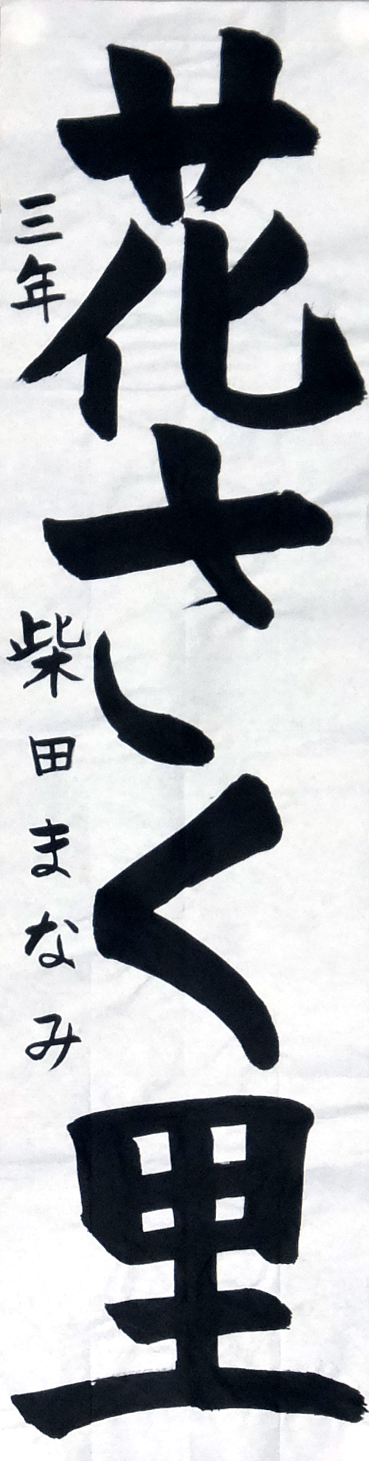 花さく里
三年 柴田まなみ